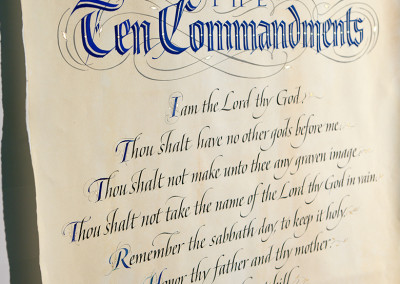 THE
Ten Commandments
I am the Lord thy God.
Thou shalt have no other gods before me.
Thou shalt not make unto thee any graven image.
Thou shalt not take the name of the Lord thy God in vain.
Remember the sabbath day, to keep it holy.
Honor thy father and thy mother.
kill